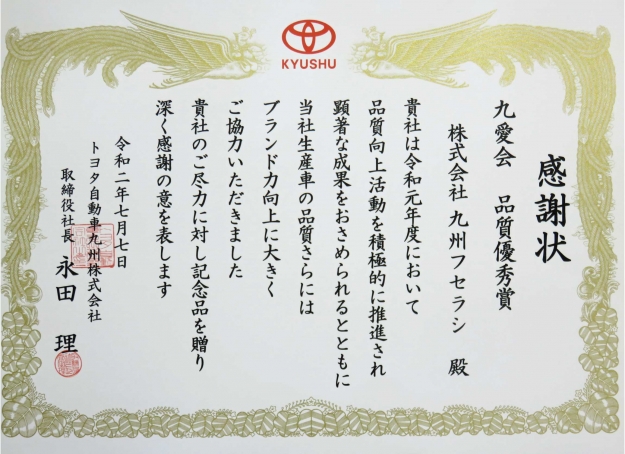 KYUSHU
感謝状
九愛会 品質優秀賞
株式会社 九州フセラシ 殿
貴社は令和元年度において
品質向上活動を積極的に推進され
顕著な成果をおさめられるとともに
当社生産車の品質さらには
ブランド力向上に大きく
ご協力いただきました
貴社のご尽力に対し記念品を贈り
深く感謝の意を表します
令和二年七月七日
トヨタ自動車九州株式会社
取締役社長 永田 理